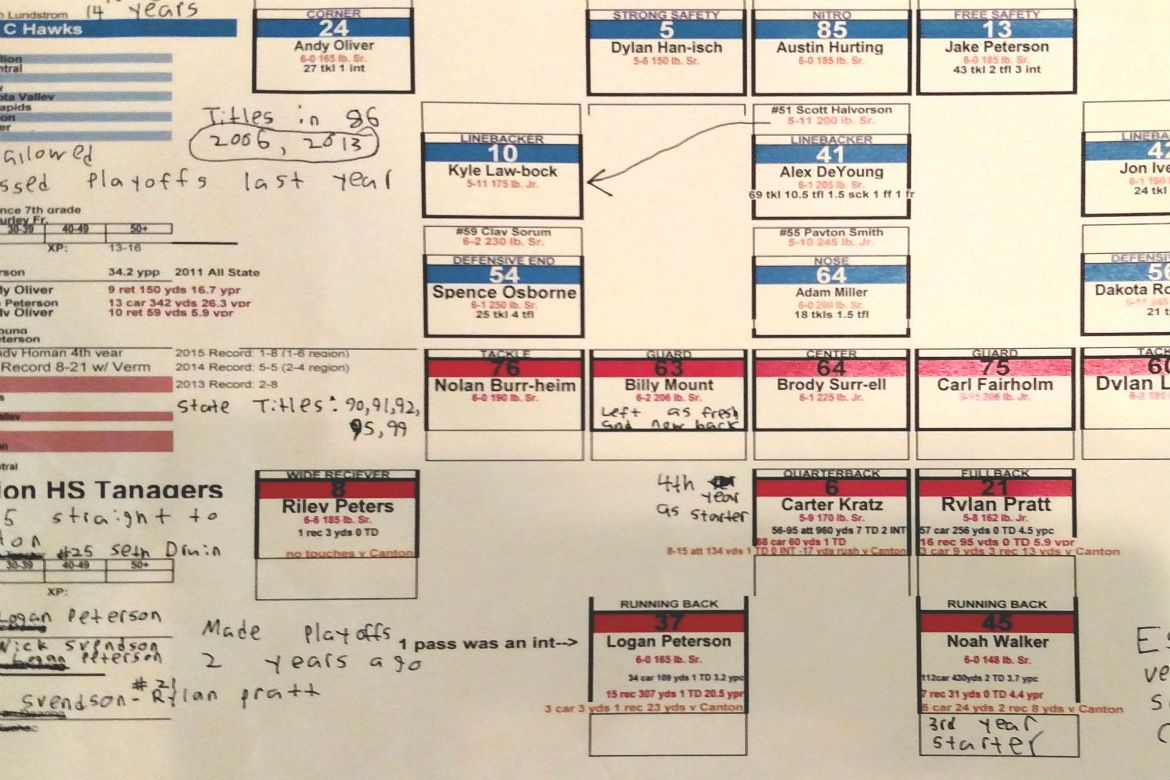 Lundstrom 14 years
C Hawks
ntral
ota Valley
apids
allowed
ssed playoffs last year
Titles in 86
2006, 2013
nce 7th grade
urley Fr.
30-39 40-49 50+
XP: 13-16
rson 34.2 ypp 2011 All State
dy Oliver 9 ret 150 yds 16.7 ypr
Peterson 13 car 342 yds 26.3 vpr
dv Oliver 10 ret 59 yds 5.9 vpr
oung
eterson
CORNER
24
Andy Oliver
6-0 165 lb. Sr.
27 tkl 1 int
STRONG SAFETY
5
Dylan Han-isch
5-6 150 lb. Sr.
NITRO
85
Austin Hurting
6-0 185 lb. Sr.
FREE SAFETY
13
Jake Peterson
6-0 185 lb. Sr.
43 tkl 2 tfl 3 int
#51 Scott Halvorson
5-11 200 lb. Sr.
LINEBACKER
10
Kyle Law-bock
5-11 175 lb. Jr.
LINEBACKER
41
Alex DeYoung
6-1 205 lb. Sr.
69 tkl 10.5 tfl 1.5 sck 1 ff 1 fr
LINEBA
42
Jon Ive
6-1 190
24 tkl
#59 Clay Sorum
6-2 230 lb. Sr.
#55 Payton Smith
5-10 245 lb. Jr.
DEFENSIVE END
54
Spence Osborne
6-1 250 lb. Sr.
25 tkl 4 tfl
NOSE
64
Adam Miller
18 tkls 1.5 tfl
DEFENS
Dakota Ro
21 t
dy Homan 4th year 2015 Record: 1-8 (1-6 region)
Record 8-21 w/ Verm 2014 Record: 5-5 (2-4 region)
2013 Record: 2-8
State Titles: 90,91,92,
95,99
TACKLE
76
Nolan Burr-heim
6-0 190 lb. Sr.
GUARD
63
Billy Mount
6-2 206 lb. Sr.
Left as fresh
and new back
CENTER
64
Brody Surr-ell
6-1 225 lb. Jr.
GUARD
75
Carl Fairholm
206 lb. Jr.
TACK
60
Dylan L
ntral
ion HS Tanagers
5 straight to
#25 Seth Druin
30-39 40-49 50+
XP:
Logan Peterson
Nick Svendson
Logan Peterson
Svendson-#21 Rylan pratt
WIDE RECIEVER
8
Riley Peters
6-6 185 lb. Sr.
1 rec 3 yds 0 TD
no touches v Canton
4th year
as starter
QUARTERBACK
6
Carter Kratz
5-9 170 lb. Sr.
56-95 att 960 yds 7 TD 2 INT
68 car 60 yds 1 TD
8-15 att 134 yds 1 TD 0 INT -17 yds rush v Canton
FULLBACK
21
Rylan Pratt
5-8 162 lb. Jr.
57 car 256 yds 0 TD 4.5 ypc
16 rec 95 yds 0 TD 5.9 vpr
3 car 9 yds 3 rec 13 yds v Canton
Made playoffs
2 years ago
1 pass was an int-->
RUNNING BACK
37
Logan Peterson
6-0 165 lb. Sr.
34 car 109 yds 1 TD 3.2 ypc
15 rec 307 yds 1 TD 20.5 ypr
3 car 3 yds 1 rec 23 yds v Canton
RUNNING BACK
45
Noah Walker
6-0 148 lb. Sr.
112car 430yds 2 TD 3.7 ypc
7 rec 31 yds 0 TD 4.4 ypr
5 car 24 yds 2 rec 8 yds v Canton
3rd year
starter